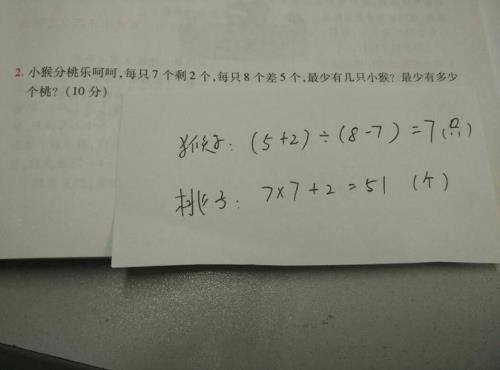 2. 小猴分桃乐呵呵,每只7个剩2个,每只8个差5个,最少有几只小猴? 最少有多少
个桃? (10分)
猴子: (5+2)÷(8-7)=7(只)
桃子: 7×7+2=51 (个)